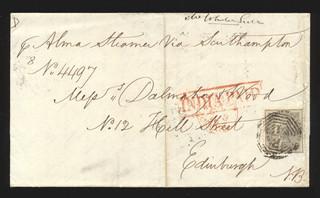 D
p Alma Steamer Via Southampton
No 4497
Messrs Dalmahoy & Wood
INDIA PAID
No. 12 Hill Street
Edinburgh
NB